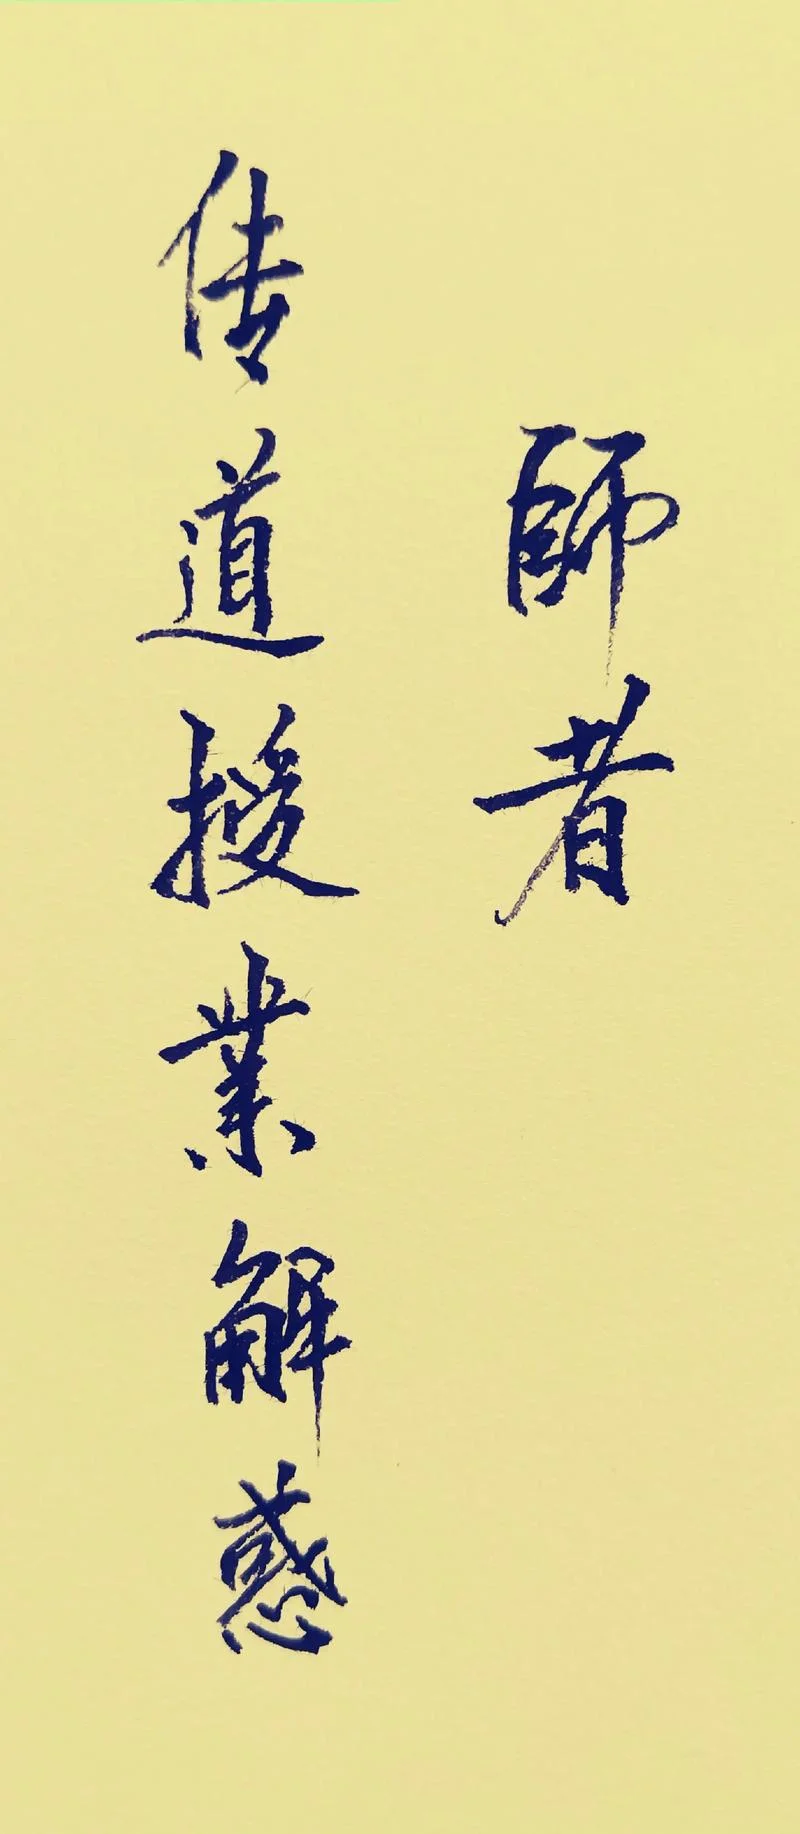 師者
传道授業解惑